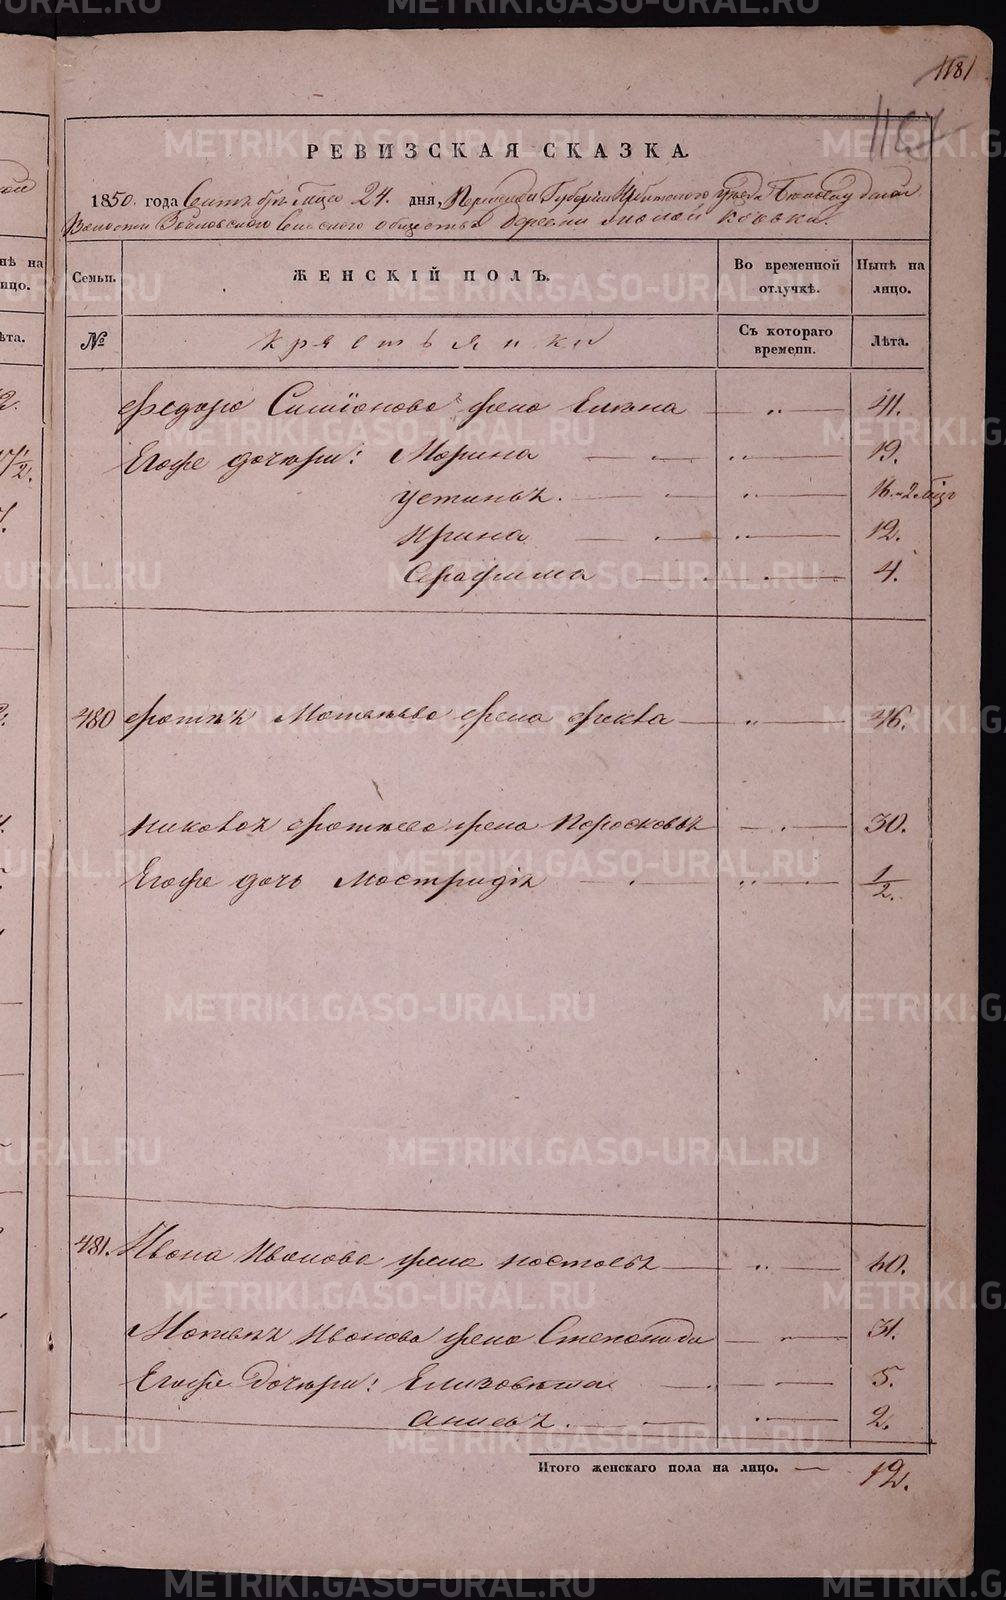 1181
1167
РЕВИЗСКАЯ СКАЗКА.
1850. года Сентября мца 24. дня, Пермской Губернии Ирбитского уезда
Волости Сельского общества деревни
Семьи. ЖЕНСКІЙ ПОЛЪ. Во временной отлучкѣ. Нынѣ на лицо.
№ крестьянки Съ котораго времени. Лѣта.
Федора Симіонова жена Елена — „ — 41.
Егоже дочери: Марина — „ — 19.
Устинья. — „ — 16.-2 мѣц
Ирина — „ — 12.
Серафима — „ — 4.
480 Фотѣя Матвѣева жена Фекла — „ — 46.
Иакова Фотѣева жена Парасковья — „ — 30.
Егоже дочь Мастридія — „ — 1/2.
481. Ивана Иванова жена Настасья — „ — 60.
Матвѣя Иванова жена Степанида — „ — 31.
Егоже Дочери: Елизавета — „ — 5.
Анисья. — „ — 2.
Итого женскаго пола на лицо. — 12.
METRIKI.GASO-URAL.RU